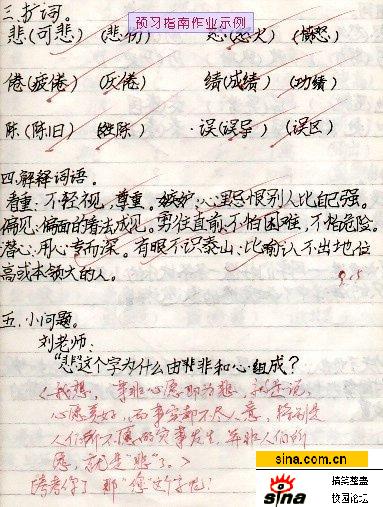 预习指南作业示例
三、扩词。
悲(可悲) (悲伤) 怒(怒火) (愤怒)
倦(疲倦) (厌倦) 绩(成绩) (功绩)
陈(陈旧) (姓陈) 误(误导) (误区)
四.解释词语。
看重:不轻视,尊重。嫉妒:心里忌恨别人比自己强。
偏见:偏面的看法成见。勇往直前:不怕困难,不怕危险。
潜心:用心专而深。有眼不识泰山:比喻认不出地位
高或本领大的人。
9.5
五.小问题。
刘老师:
"悲"这个字为什么由非和心组成?
<我想,并非心愿即为悲,就是说,
心愿美好,而事实都不尽人意,特别是
人们所不愿的灾事发生,并非人们所
愿,就是"悲"了。>
考考你了 那"您"这个字呢?
sina.com.cn
sina
搞笑整蛊
校园论坛